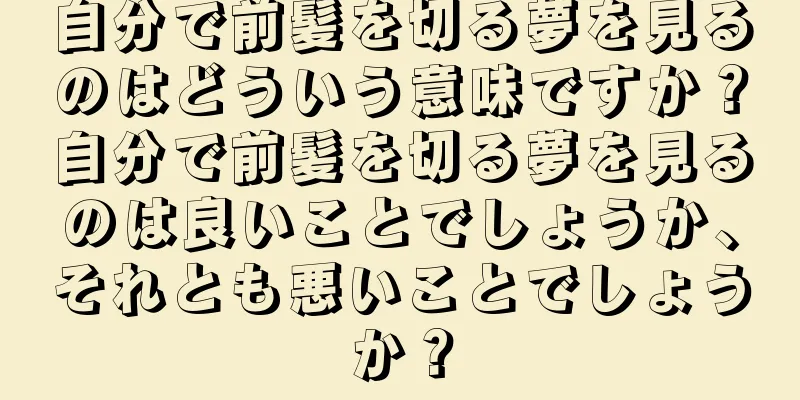 自分で前髪を切る夢を見る
のはどういう意味ですか？
自分で前髪を切る夢を見る
のは良いことでしょうか、
それとも悪いことでしょう
か？